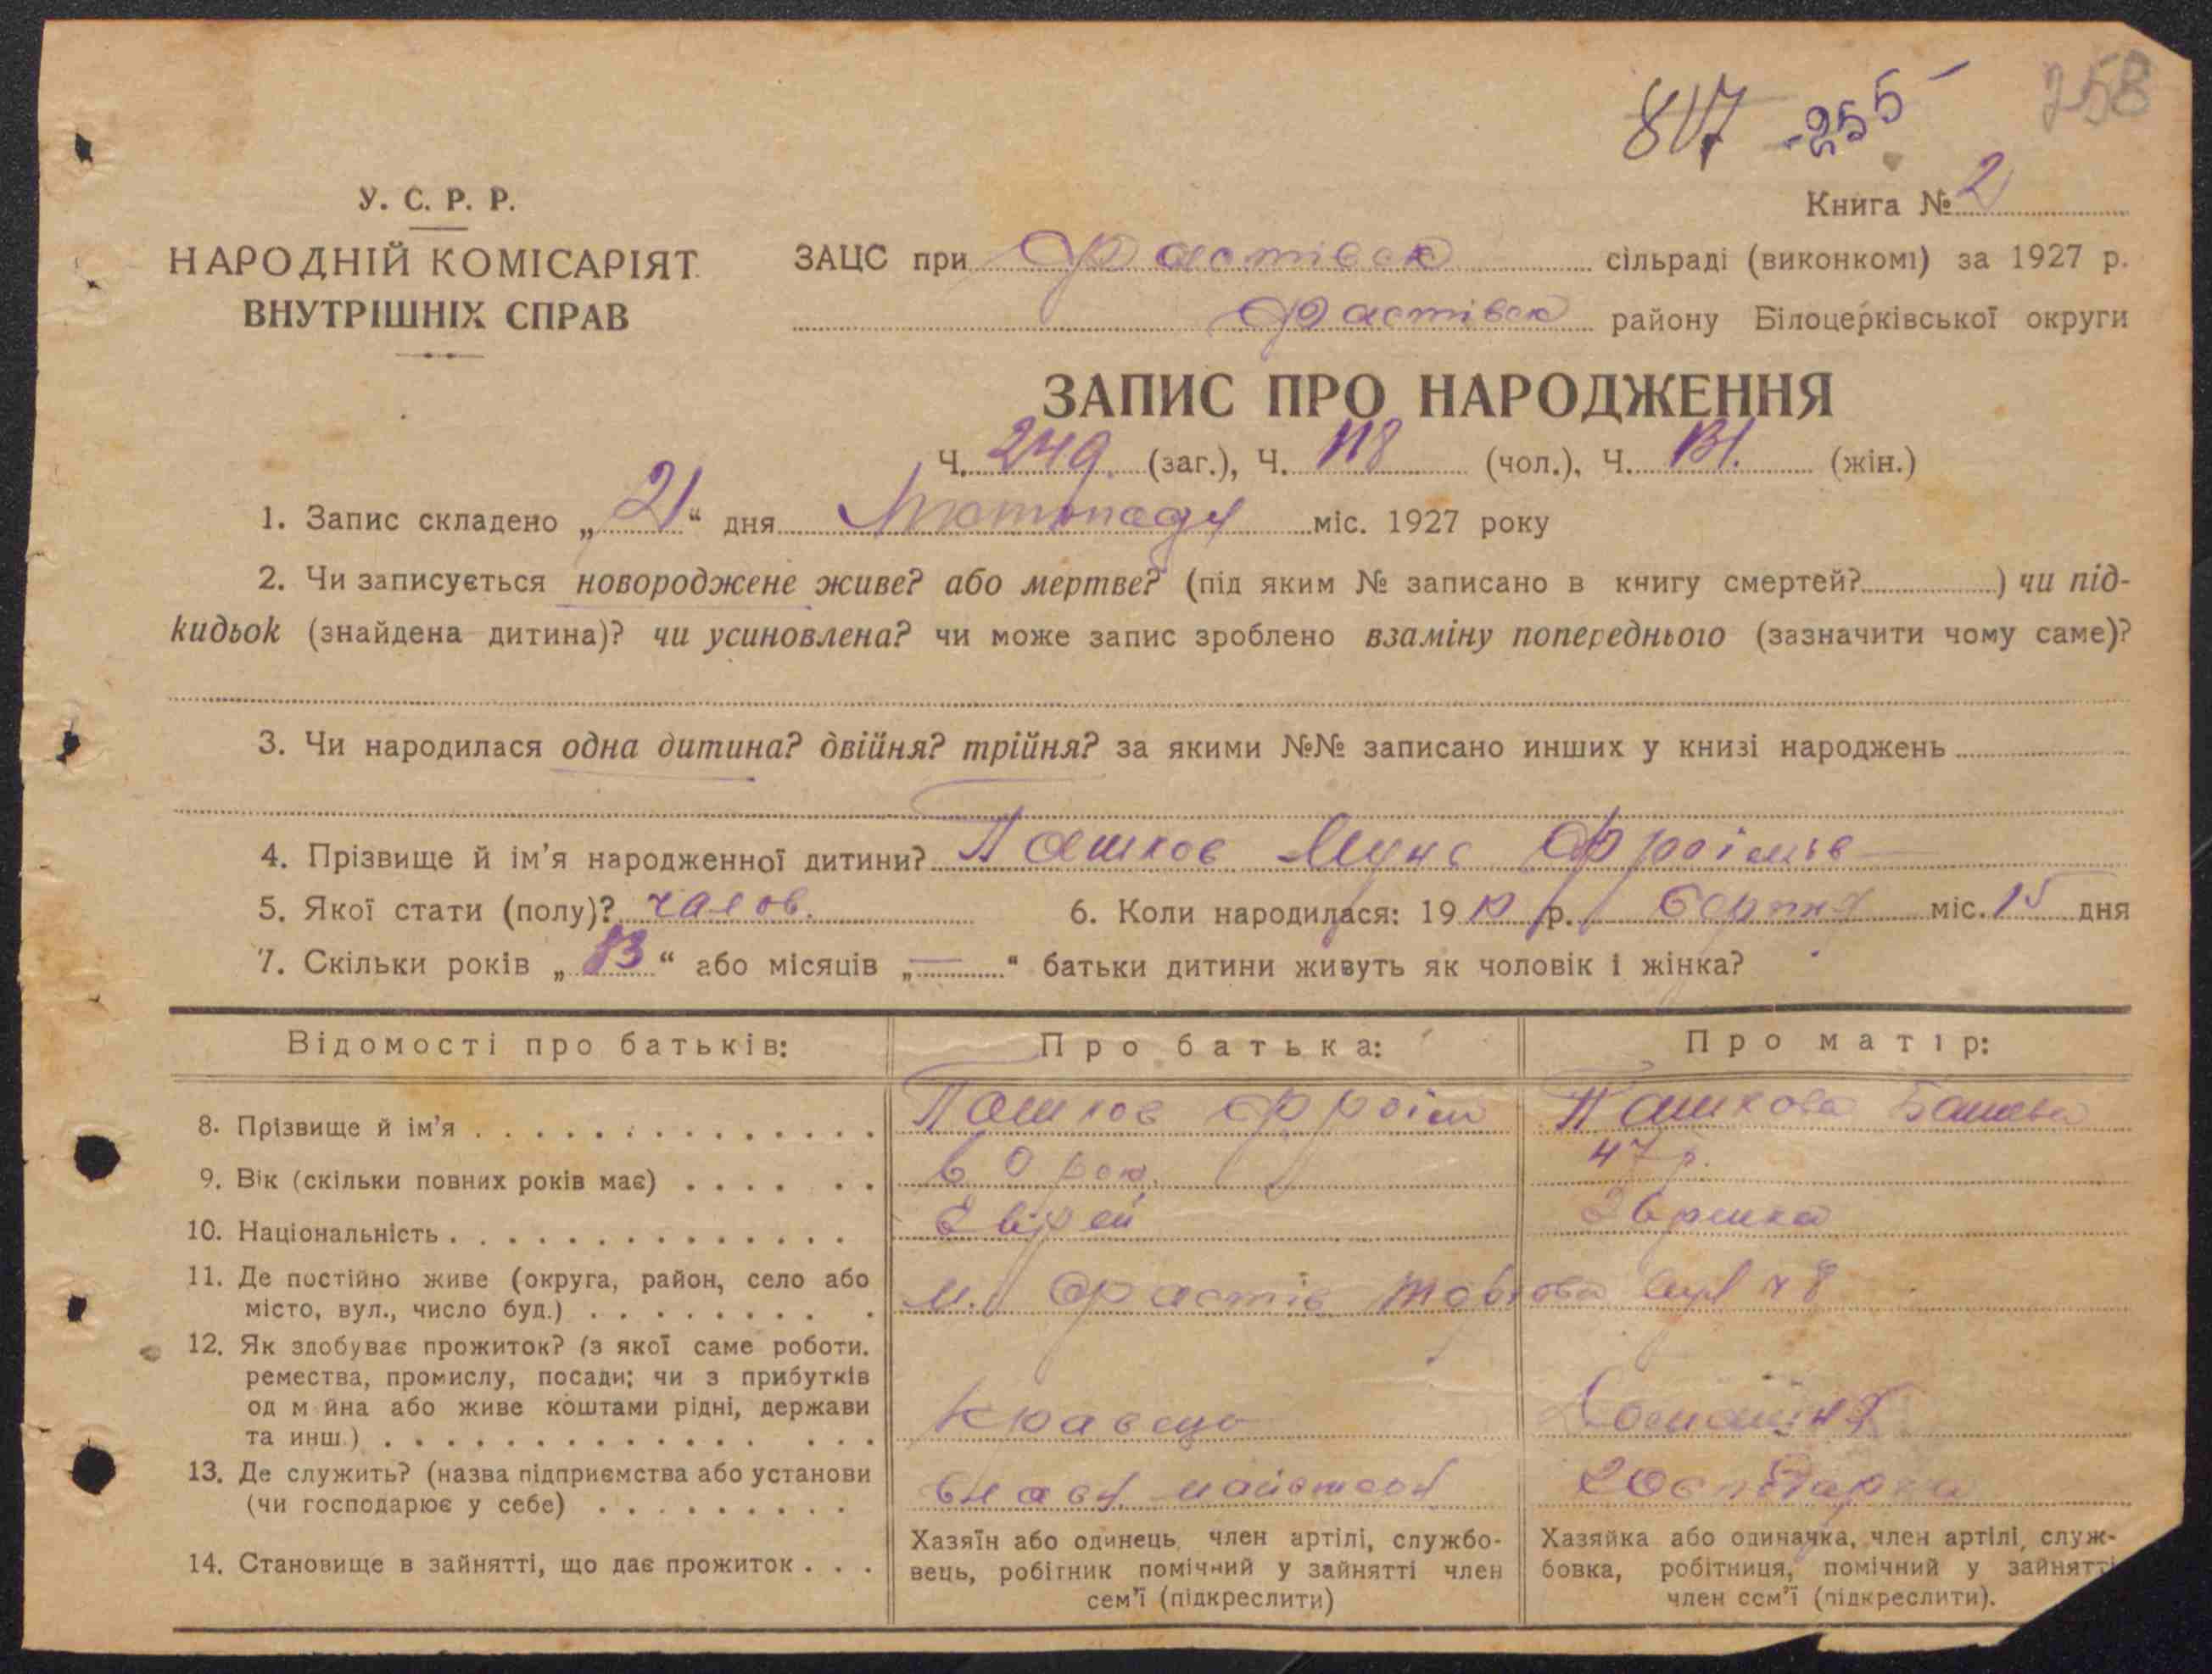 258
817 -255-
Книга № 2
У. С. Р. Р.
НАРОДНІЙ КОМІСАРІЯТ
ВНУТРІШНІХ СПРАВ
ЗАЦС при Фастівск сільраді (виконкомі) за 1927 р.
Фастівск району Білоцерківської округи
ЗАПИС ПРО НАРОДЖЕННЯ
Ч. 249 (заг.), Ч. 118 (чол.), Ч. 131. (жін.)
1. Запис складено „21“ дня міс. 1927 року
2. Чи записується новороджене живе? або мертве? (під яким № записано в книгу смертей? ) чи під-
кидьок (знайдена дитина)? чи усиновлена? чи може запис зроблено взаміну попереднього (зазначити чому саме)?
3. Чи народилася одна дитина? двійня? трійня? за якими №№ записано инших у книзі народжень
4. Прізвище й ім'я народженної дитини? Пашков Фроімів
5. Якої стати (полу)? чалов. 6. Коли народилася: 1910 р. серпня міс. 15 дня
7. Скільки років „13“ або місяців „—“ батьки дитини живуть як чоловік і жінка?
Відомості про батьків: Про батька: Про матір:
8. Прізвище й ім'я Пашков Фроім Пашкова
9. Вік (скільки повних років має) 60 рок. 47 р.
10. Національність Єврей Эврейка
11. Де постійно живе (округа, район, село або
місто, вул., число буд.) м. Фастів вул ч 8
12. Як здобуває прожиток? (з якої саме роботи.
ремества, промислу, посади; чи з прибутків
од м йна або живе коштами рідні, держави
та инш.) Кравець Домашня
13. Де служить? (назва підприємства або установи
(чи господарює у себе) майстерн господарка
14. Становище в зайнятті, що дає прожиток
Хазяїн або одинець, член артілі, службо-
вець, робітник помічний у зайнятті член
сем'ї (підкреслити)
Хазяйка або одиначка, член артілі, служ-
бовка, робітниця, помічний у зайнятті
член сем'ї (підкреслити).